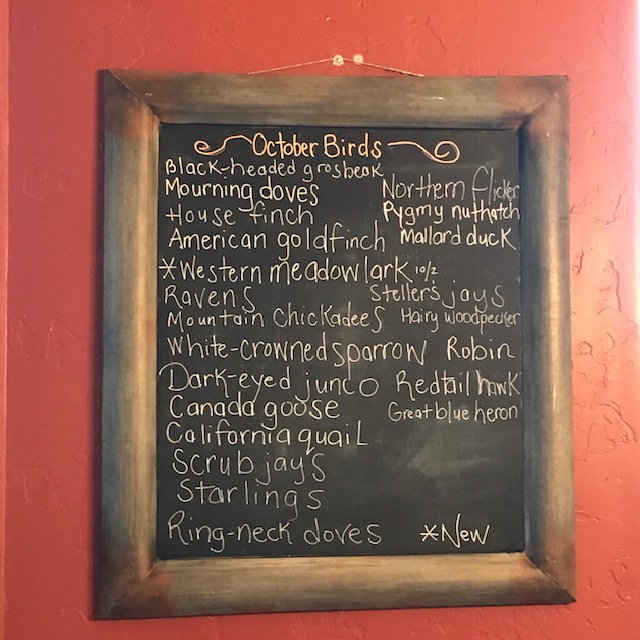 October Birds
Black-headed grosbeak
Mourning doves
Northern flicker
House finch
Pygmy nuthatch
American goldfinch
Mallard duck
*Western meadowlark 10/2
Ravens
Steller's jays
Mountain Chickadees
Hairy woodpecker
White-crowned sparrow
Robin
Dark-eyed junco
Redtail hawk
Canada goose
Great blue heron
California quail
Scrub jays
Starlings
Ring-neck doves
*New